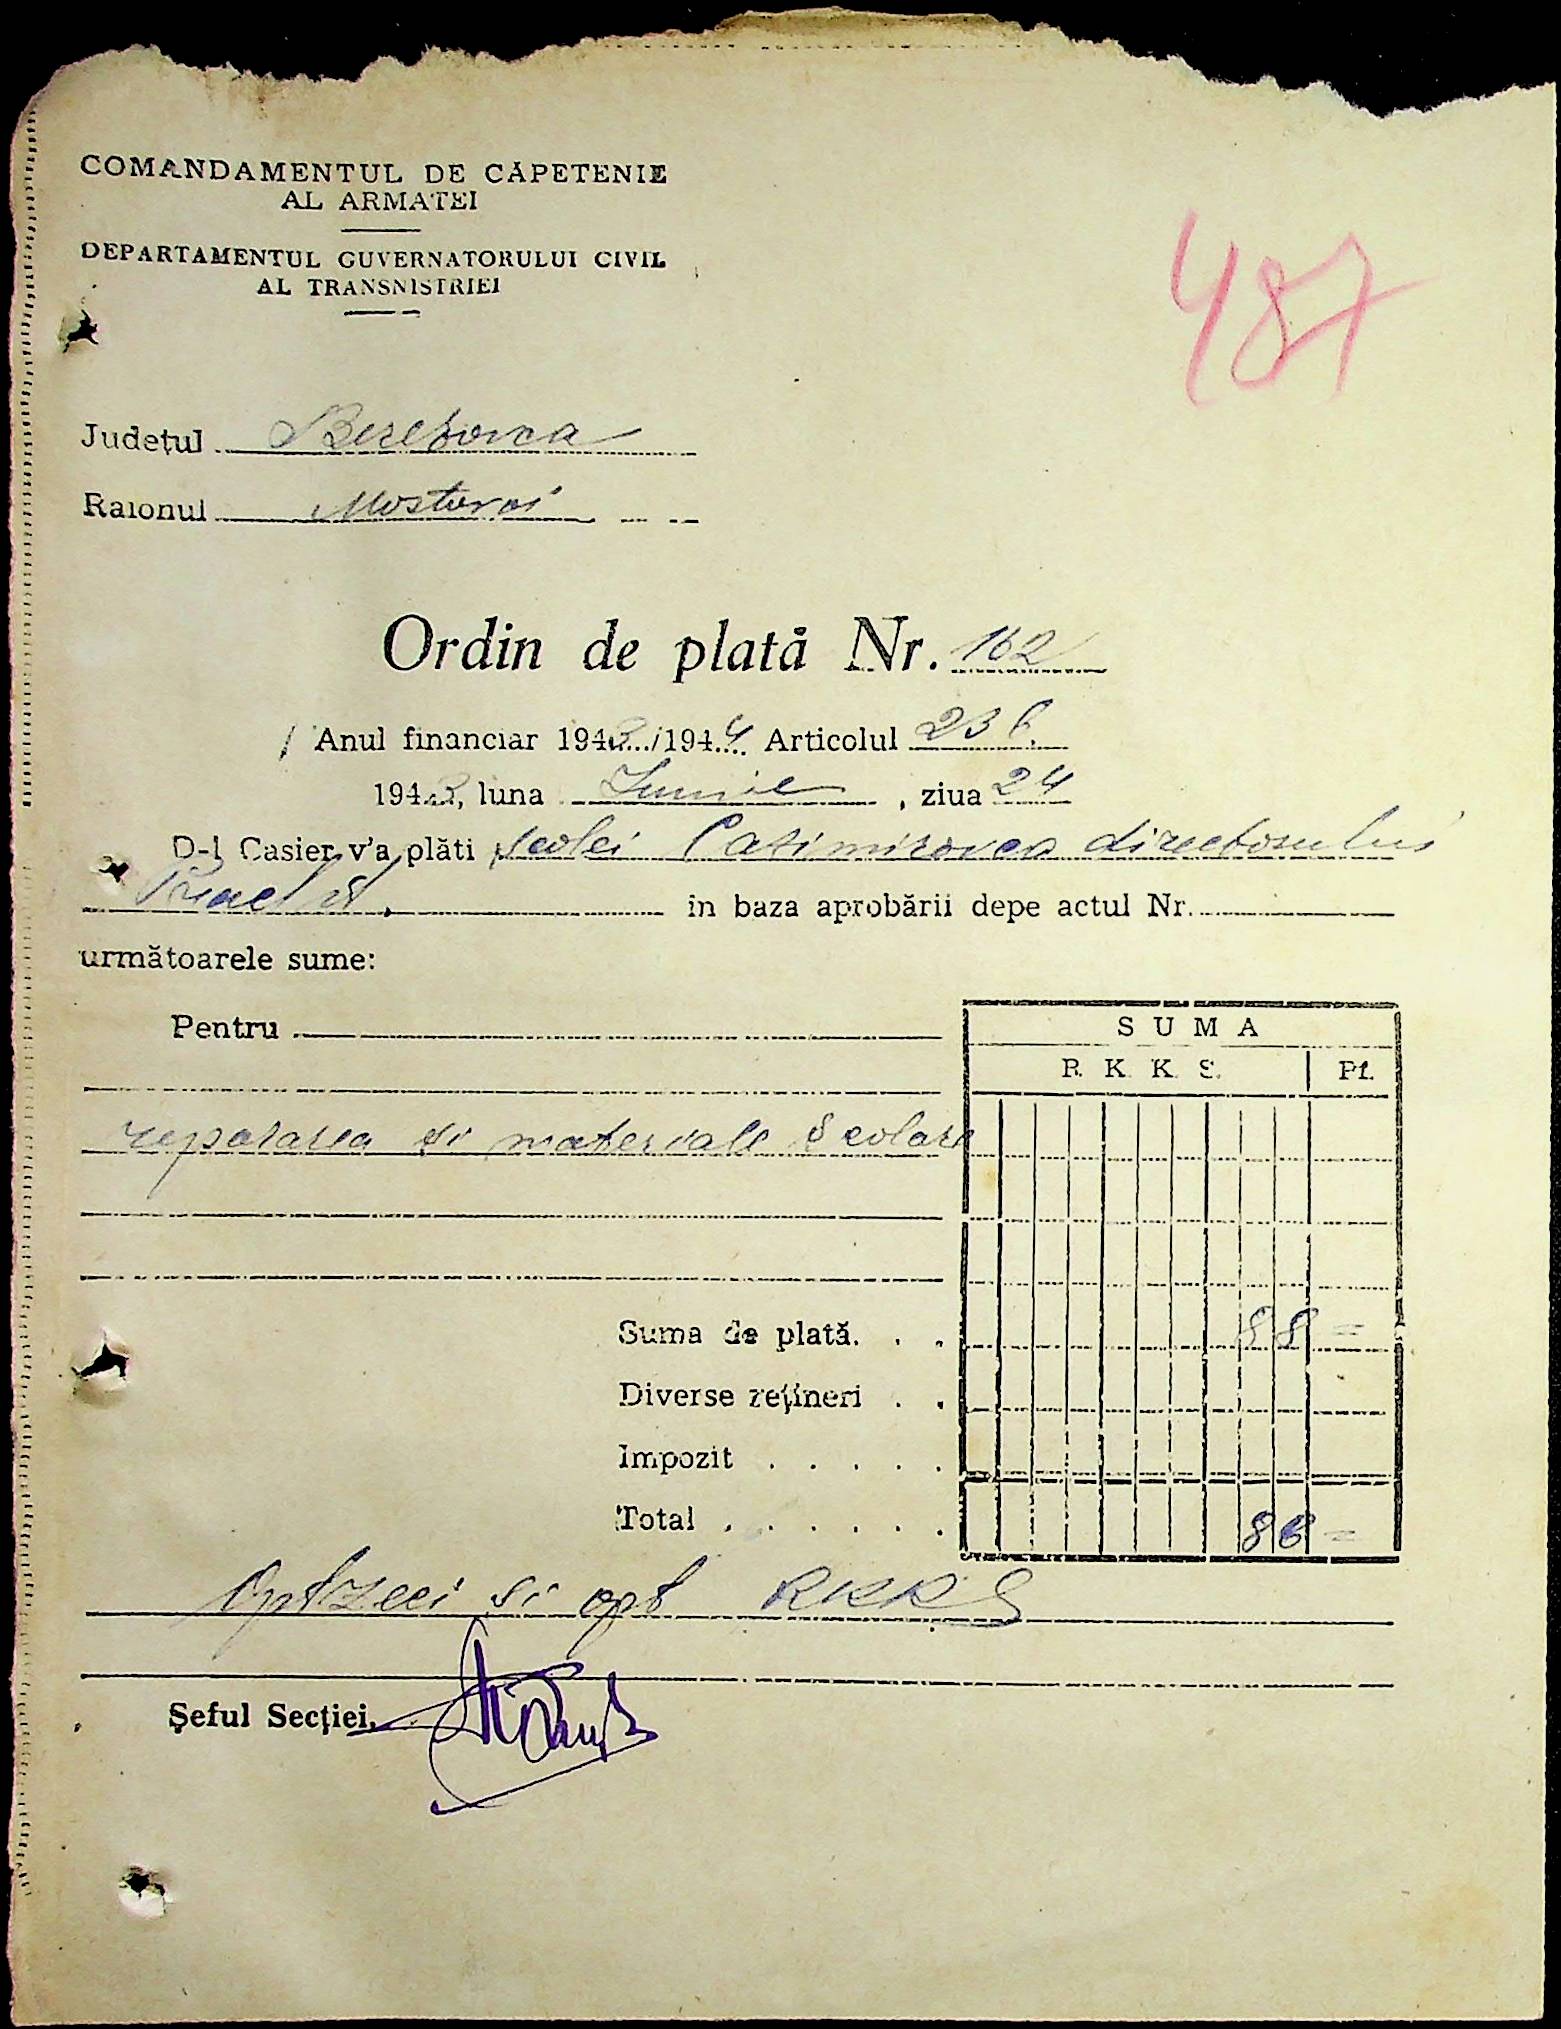 COMANDAMENTUL DE CĂPETENIE
AL ARMATEI
DEPARTAMENTUL GUVERNATORULUI CIVIL
AL TRANSNISTRIEI
487
Județul Berezovca
Raionul Mostovoi
Ordin de plată Nr. 162
Anul financiar 1943/1944 Articolul 236
1943, luna Iunie, ziua 24
D-l Casier v'a plăti școlei Catimirovca directorului
in baza aprobării depe actul Nr.
următoarele sume:
Pentru
SUMA
R. K. K. S. Pf.
repararea și materiale școlare
Suma de plată. . . 88 =
Diverse rețineri . .
Impozit . . . . .
Total . . . . . . 88 =
Optzeci si opt RKKS
Șeful Secției,